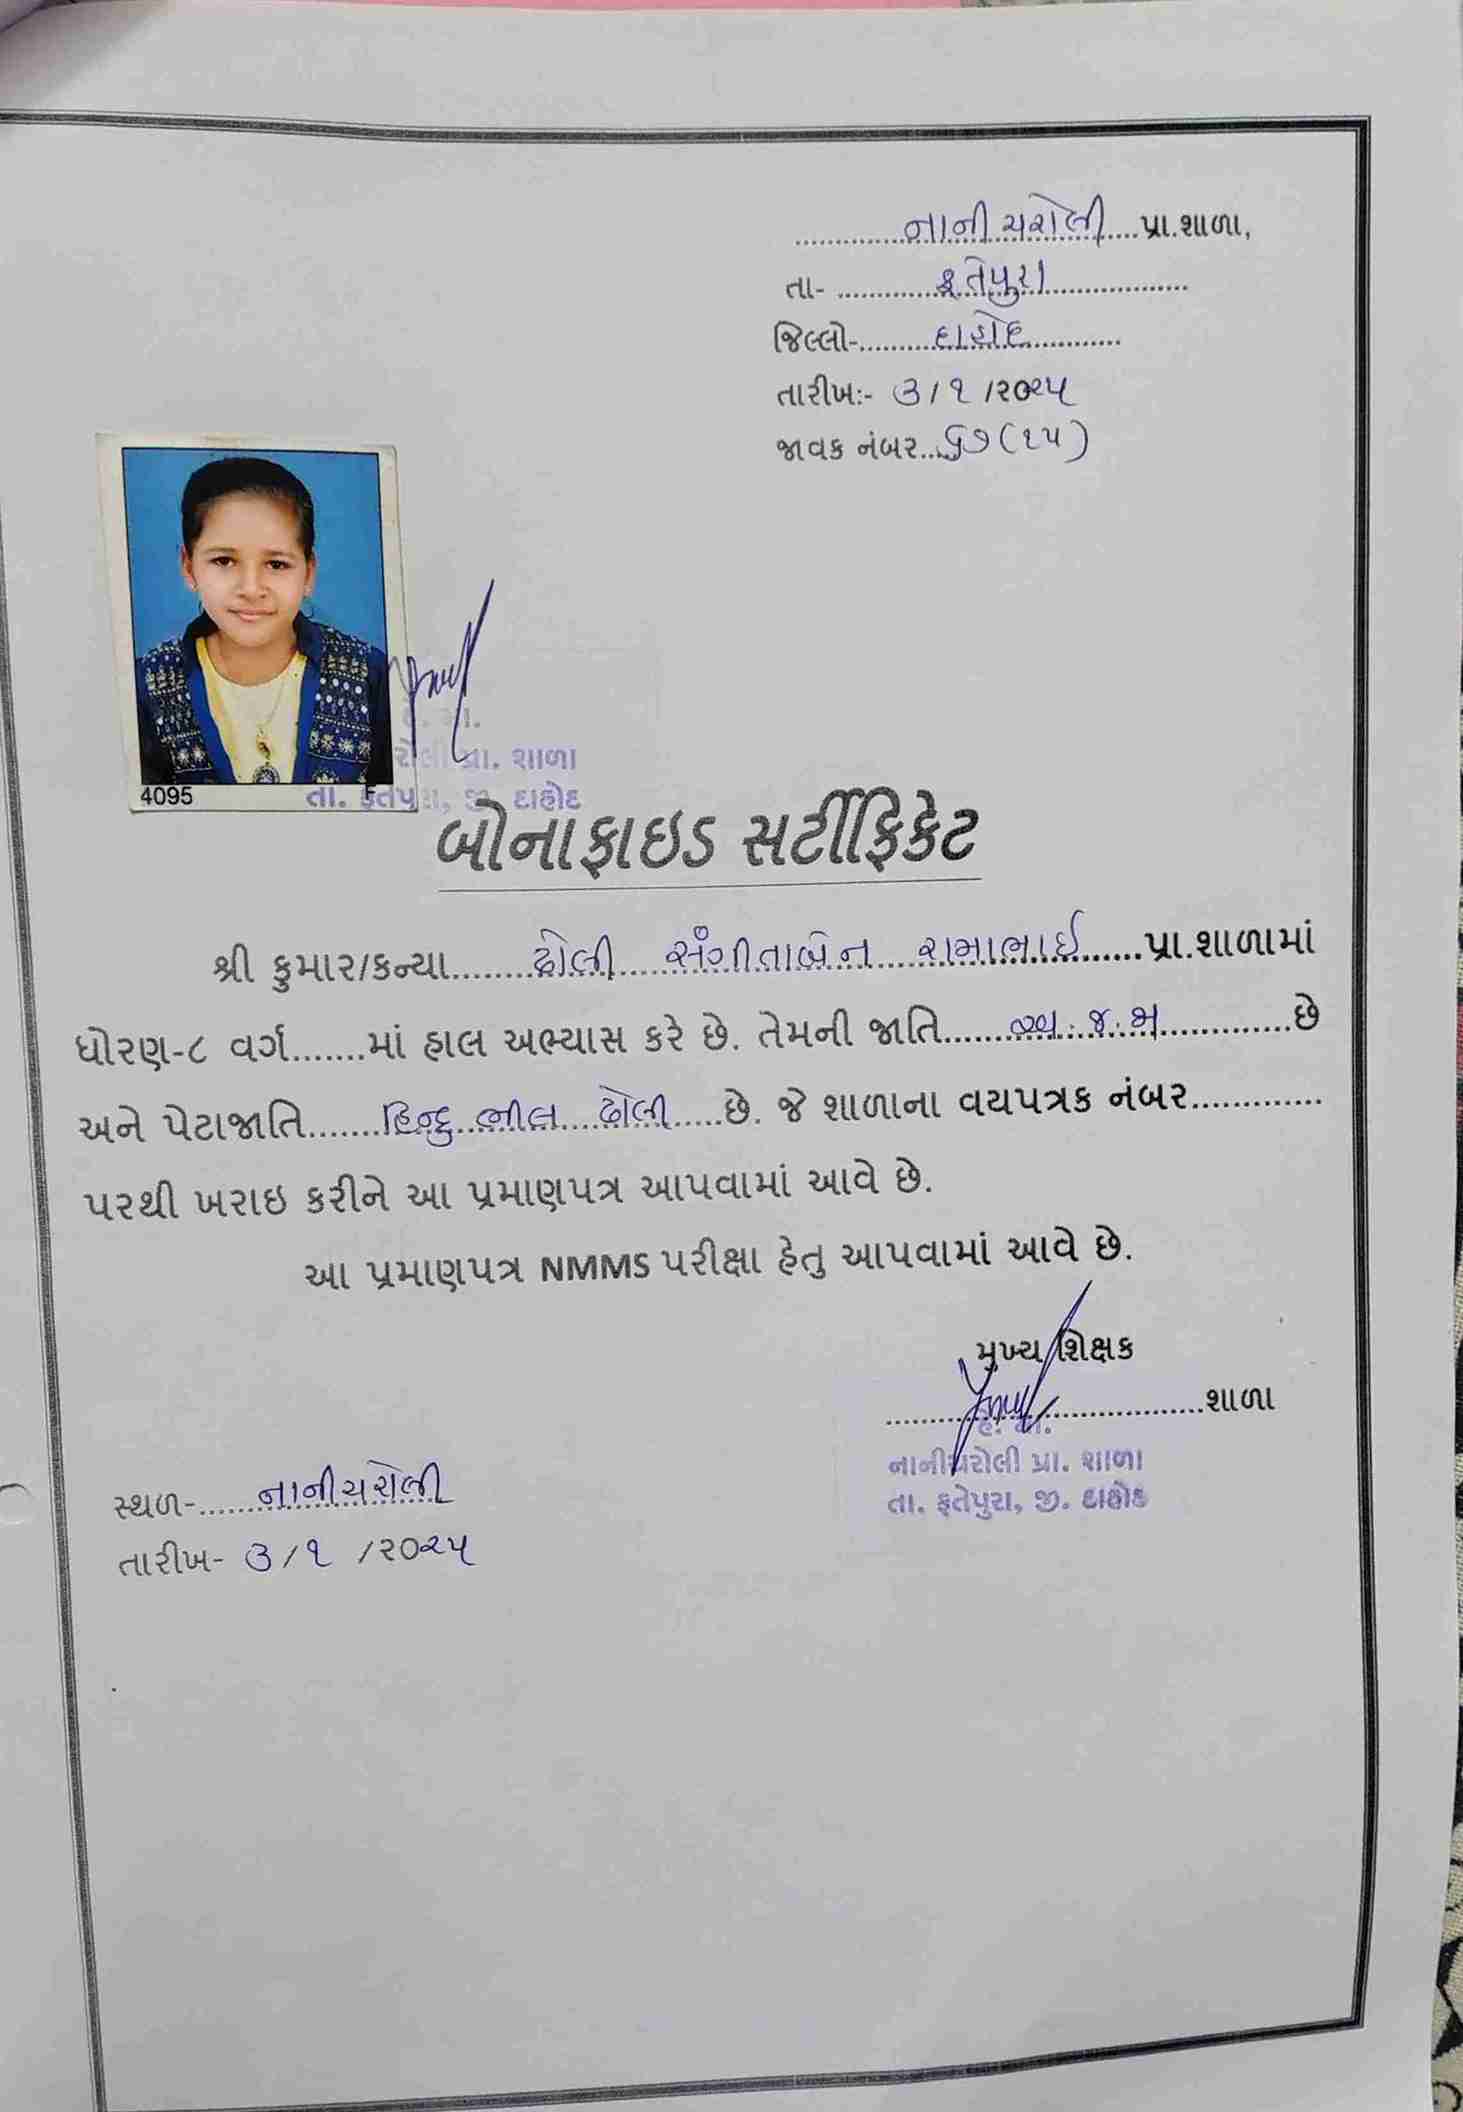 ...............નાની ચરોલી.....પ્રા.શાળા,
તા- ..............ફતેપુરા......................
જિલ્લો-..........દાહોદ..............
તારીખ:- ૩/૧/૨૦૨૫
જાવક નંબર....૬૭(૧૫)
રોલી પ્રા. શાળા
4095
તા. ફતેપુરા, જી. દાહોદ
બોનાફાઇડ સર્ટીફિકેટ
શ્રી કુમાર/કન્યા.........ઢોલી.....સંગીતાબેન.....રામાભાઈ.......પ્રા.શાળામાં
ધોરણ-૮ વર્ગ.......માં હાલ અભ્યાસ કરે છે. તેમની જાતિ..........અ.જ.જા...............છે
અને પેટાજાતિ........હિન્દુ..ભીલ....ઢોલી......છે. જે શાળાના વયપત્રક નંબર.............
પરથી ખરાઇ કરીને આ પ્રમાણપત્ર આપવામાં આવે છે.
આ પ્રમાણપત્ર NMMS પરીક્ષા હેતુ આપવામાં આવે છે.
મુખ્ય શિક્ષક
....................................શાળા
નાનીચરોલી પ્રા. શાળા
તા. ફતેપુરા, જી. દાહોદ
સ્થળ-.......નાનીચરોલી
તારીખ- ૩/૧ /૨૦૨૫